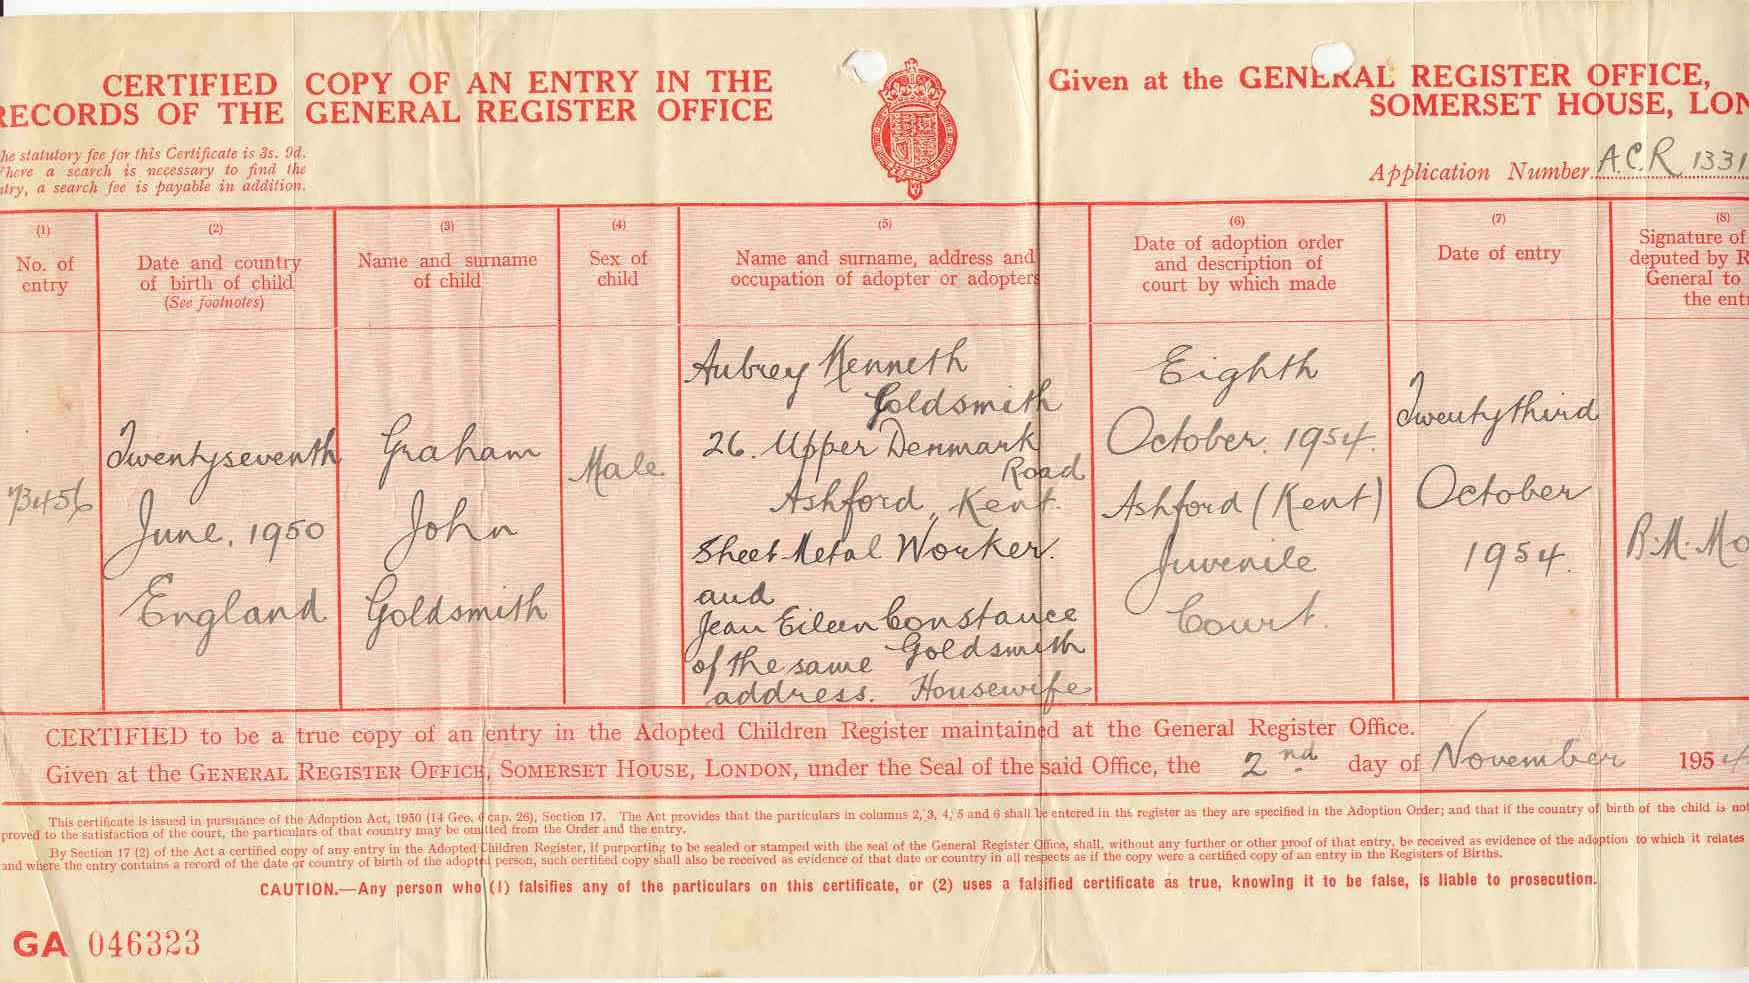 CERTIFIED COPY OF AN ENTRY IN THE
RECORDS OF THE GENERAL REGISTER OFFICE
Given at the GENERAL REGISTER OFFICE,
SOMERSET HOUSE, LON
he statutory fee for this Certificate is 3s. 9d.
here a search is necessary to find the
try, a search fee is payable in addition.
Application Number A.C.R 1331
(1)
No. of
entry
(2)
Date and country
of birth of child
(See footnotes)
(3)
Name and surname
of child
(4)
Sex of
child
(5)
Name and surname, address and
occupation of adopter or adopters
(6)
Date of adoption order
and description of
court by which made
(7)
Date of entry
(8)
Signature of
deputed by R
General to
the ent
73456
Twentyseventh
June, 1950
England
Graham
John
Goldsmith
Male
Aubrey Kenneth
Goldsmith
26. Upper Denmark
Road
Ashford, Kent.
Sheet Metal Worker.
and
Jean Eileen Constance
Goldsmith
of the same
address. Housewife
Eighth
October. 1954.
Ashford (Kent)
Juvenile
Court.
Twentythird
October
1954.
B.M. Mo
CERTIFIED to be a true copy of an entry in the Adopted Children Register maintained at the General Register Office.
Given at the GENERAL REGISTER OFFICE, SOMERSET HOUSE, LONDON, under the Seal of the said Office, the 2nd day of November 1954
This certificate is issued in pursuance of the Adoption Act, 1950 (14 Geo. 6 cap. 26), Section 17. The Act provides that the particulars in columns 2, 3, 4, 5 and 6 shall be entered in the register as they are specified in the Adoption Order; and that if the country of birth of the child is not
proved to the satisfaction of the court, the particulars of that country may be omitted from the Order and the entry.
By Section 17 (2) of the Act a certified copy of any entry in the Adopted Children Register, if purporting to be sealed or stamped with the seal of the General Register Office, shall, without any further or other proof of that entry, be received as evidence of the adoption to which it relates
and where the entry contains a record of the date or country of birth of the adopted person, such certified copy shall also be received as evidence of that date or country in all respects as if the copy were a certified copy of an entry in the Registers of Births.
CAUTION.—Any person who (1) falsifies any of the particulars on this certificate, or (2) uses a falsified certificate as true, knowing it to be false, is liable to prosecution.
GA 046323